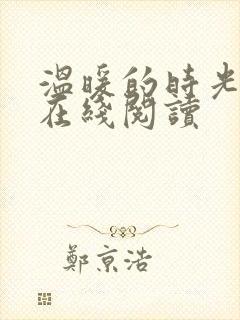 溫暖的時光
在綫閱讀
鄭京浩